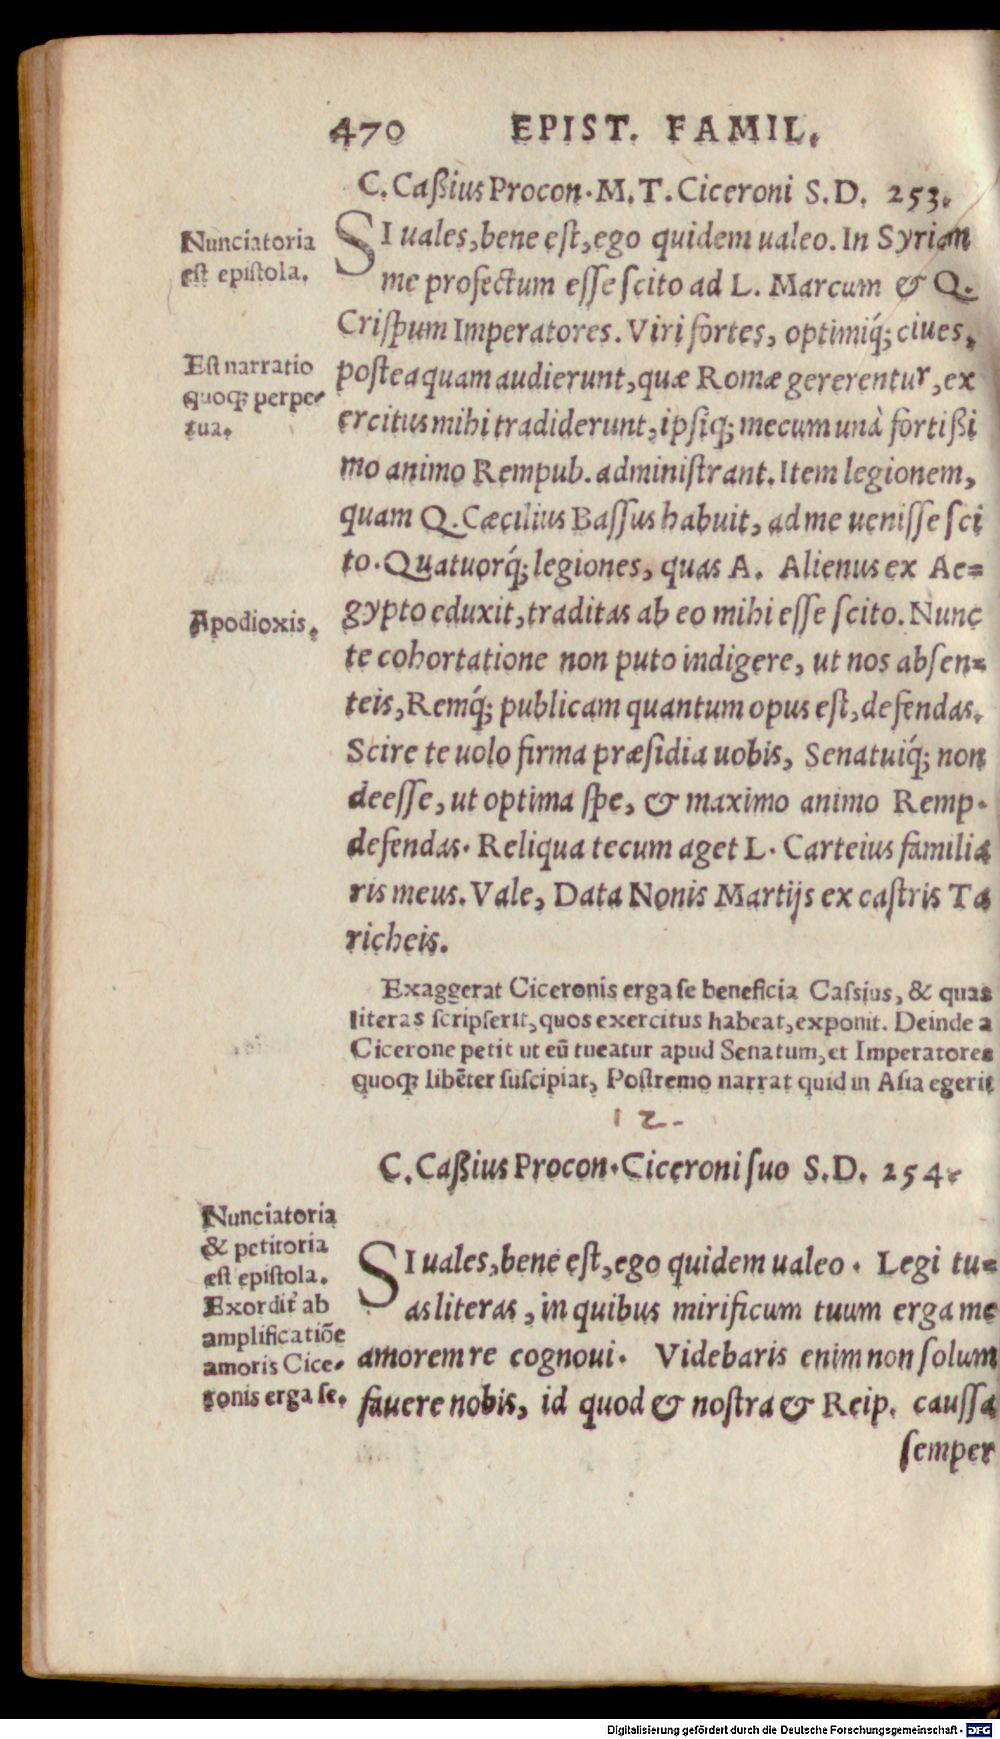 470 EPIST. FAMIL.
C. Caßius Procon. M. T. Ciceroni S. D. 253.
Nunciatoria
est epistola.
SI uales, bene est, ego quidem ualeo. In Syriam
me profectum esse scito ad L. Marcum & Q.
Crispum Imperatores. Viri fortes, optimiq́; ciues,
Est narratio
quoq; perpe-
tua.
posteaquam audierunt, quæ Romæ gererentur, ex
ercitus mihi tradiderunt, ipsiq; mecum unà fortißi
mo animo Rempub. administrant. Item legionem,
quam Q. Cæcilius Bassus habuit, ad me uenisse sci
to. Quatuorq́; legiones, quas A. Alienus ex Ae=
Apodioxis.
gypto eduxit, traditas ab eo mihi esse scito. Nunc
te cohortatione non puto indigere, ut nos absen=
teis, Remq́; publicam quantum opus est, defendas.
Scire te uolo firma præsidia uobis, Senatuiq́; non
deesse, ut optima spe, & maximo animo Remp.
defendas. Reliqua tecum aget L. Carteius familia
ris meus. Vale, Data Nonis Martijs ex castris Ta
richeis.
Exaggerat Ciceronis erga se beneficia Cassius, & quas
literas scripserit, quos exercitus habeat, exponit. Deinde a
Cicerone petit ut eũ tueatur apud Senatum, et Imperatores
quoq; libẽter suscipiat, Postremo narrat quid in Asia egerit
12.
C. Caßius Procon. Ciceroni suo S. D. 254.
Nunciatoria
& petitoria
est epistola.
Exordit̃ ab
amplificatiõe
amoris Cice-
ronis erga se.
SI uales, bene est, ego quidem ualeo. Legi tu=
as literas, in quibus mirificum tuum erga me
amorem re cognoui. Videbaris enim non solum
fauere nobis, id quod & nostra & Reip. caussa
semper
Digitalisierung gefördert durch die Deutsche Forschungsgemeinschaft - DFG